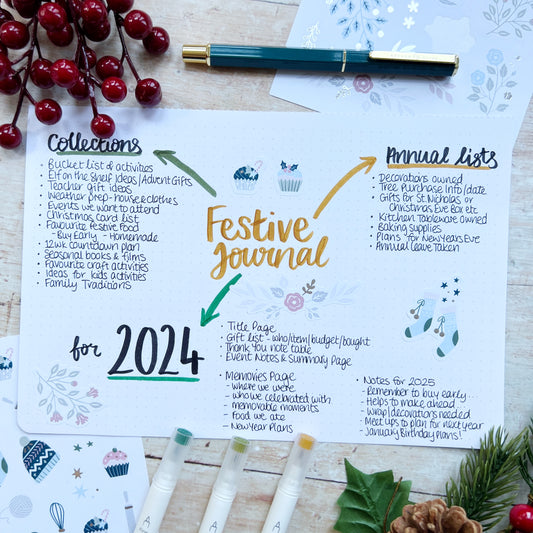 Collections
• Bucket list of activities
• Elf on the Shelf Ideas/Advent Gifts
• Teacher gift ideas
• Weather prep - house & clothes
• Events we want to attend
• Christmas card list
• Favourite festive Food
- Buy Early - Homemade
• 12wk countdown plan
• Seasonal books & films
• Favourite craft activities
• Ideas for kids activities
• Family Traditions
Festive
Journal
Annual lists
• Decorations owned
• Tree Purchase Info/date
• Gifts for St Nicholas or
Christmas Eve Box etc
• Kitchen Tableware owned
• Baking supplies
• Plans for New Years Eve
• Annual Leave Taken
for 2024
• Title Page
• Gift list - who/item/budget/bought
• Thank you note table
• Event Notes & Summary Page
• Memories Page
- where we were
- who we celebrated with
- memorable moments
- food we ate
- New Year Plans
• Notes for 2025
- Remember to buy early...
- Helps to make ahead...
- Wrap/decorations needed
- Meet ups to plan for next year
- January Birthday Plans!